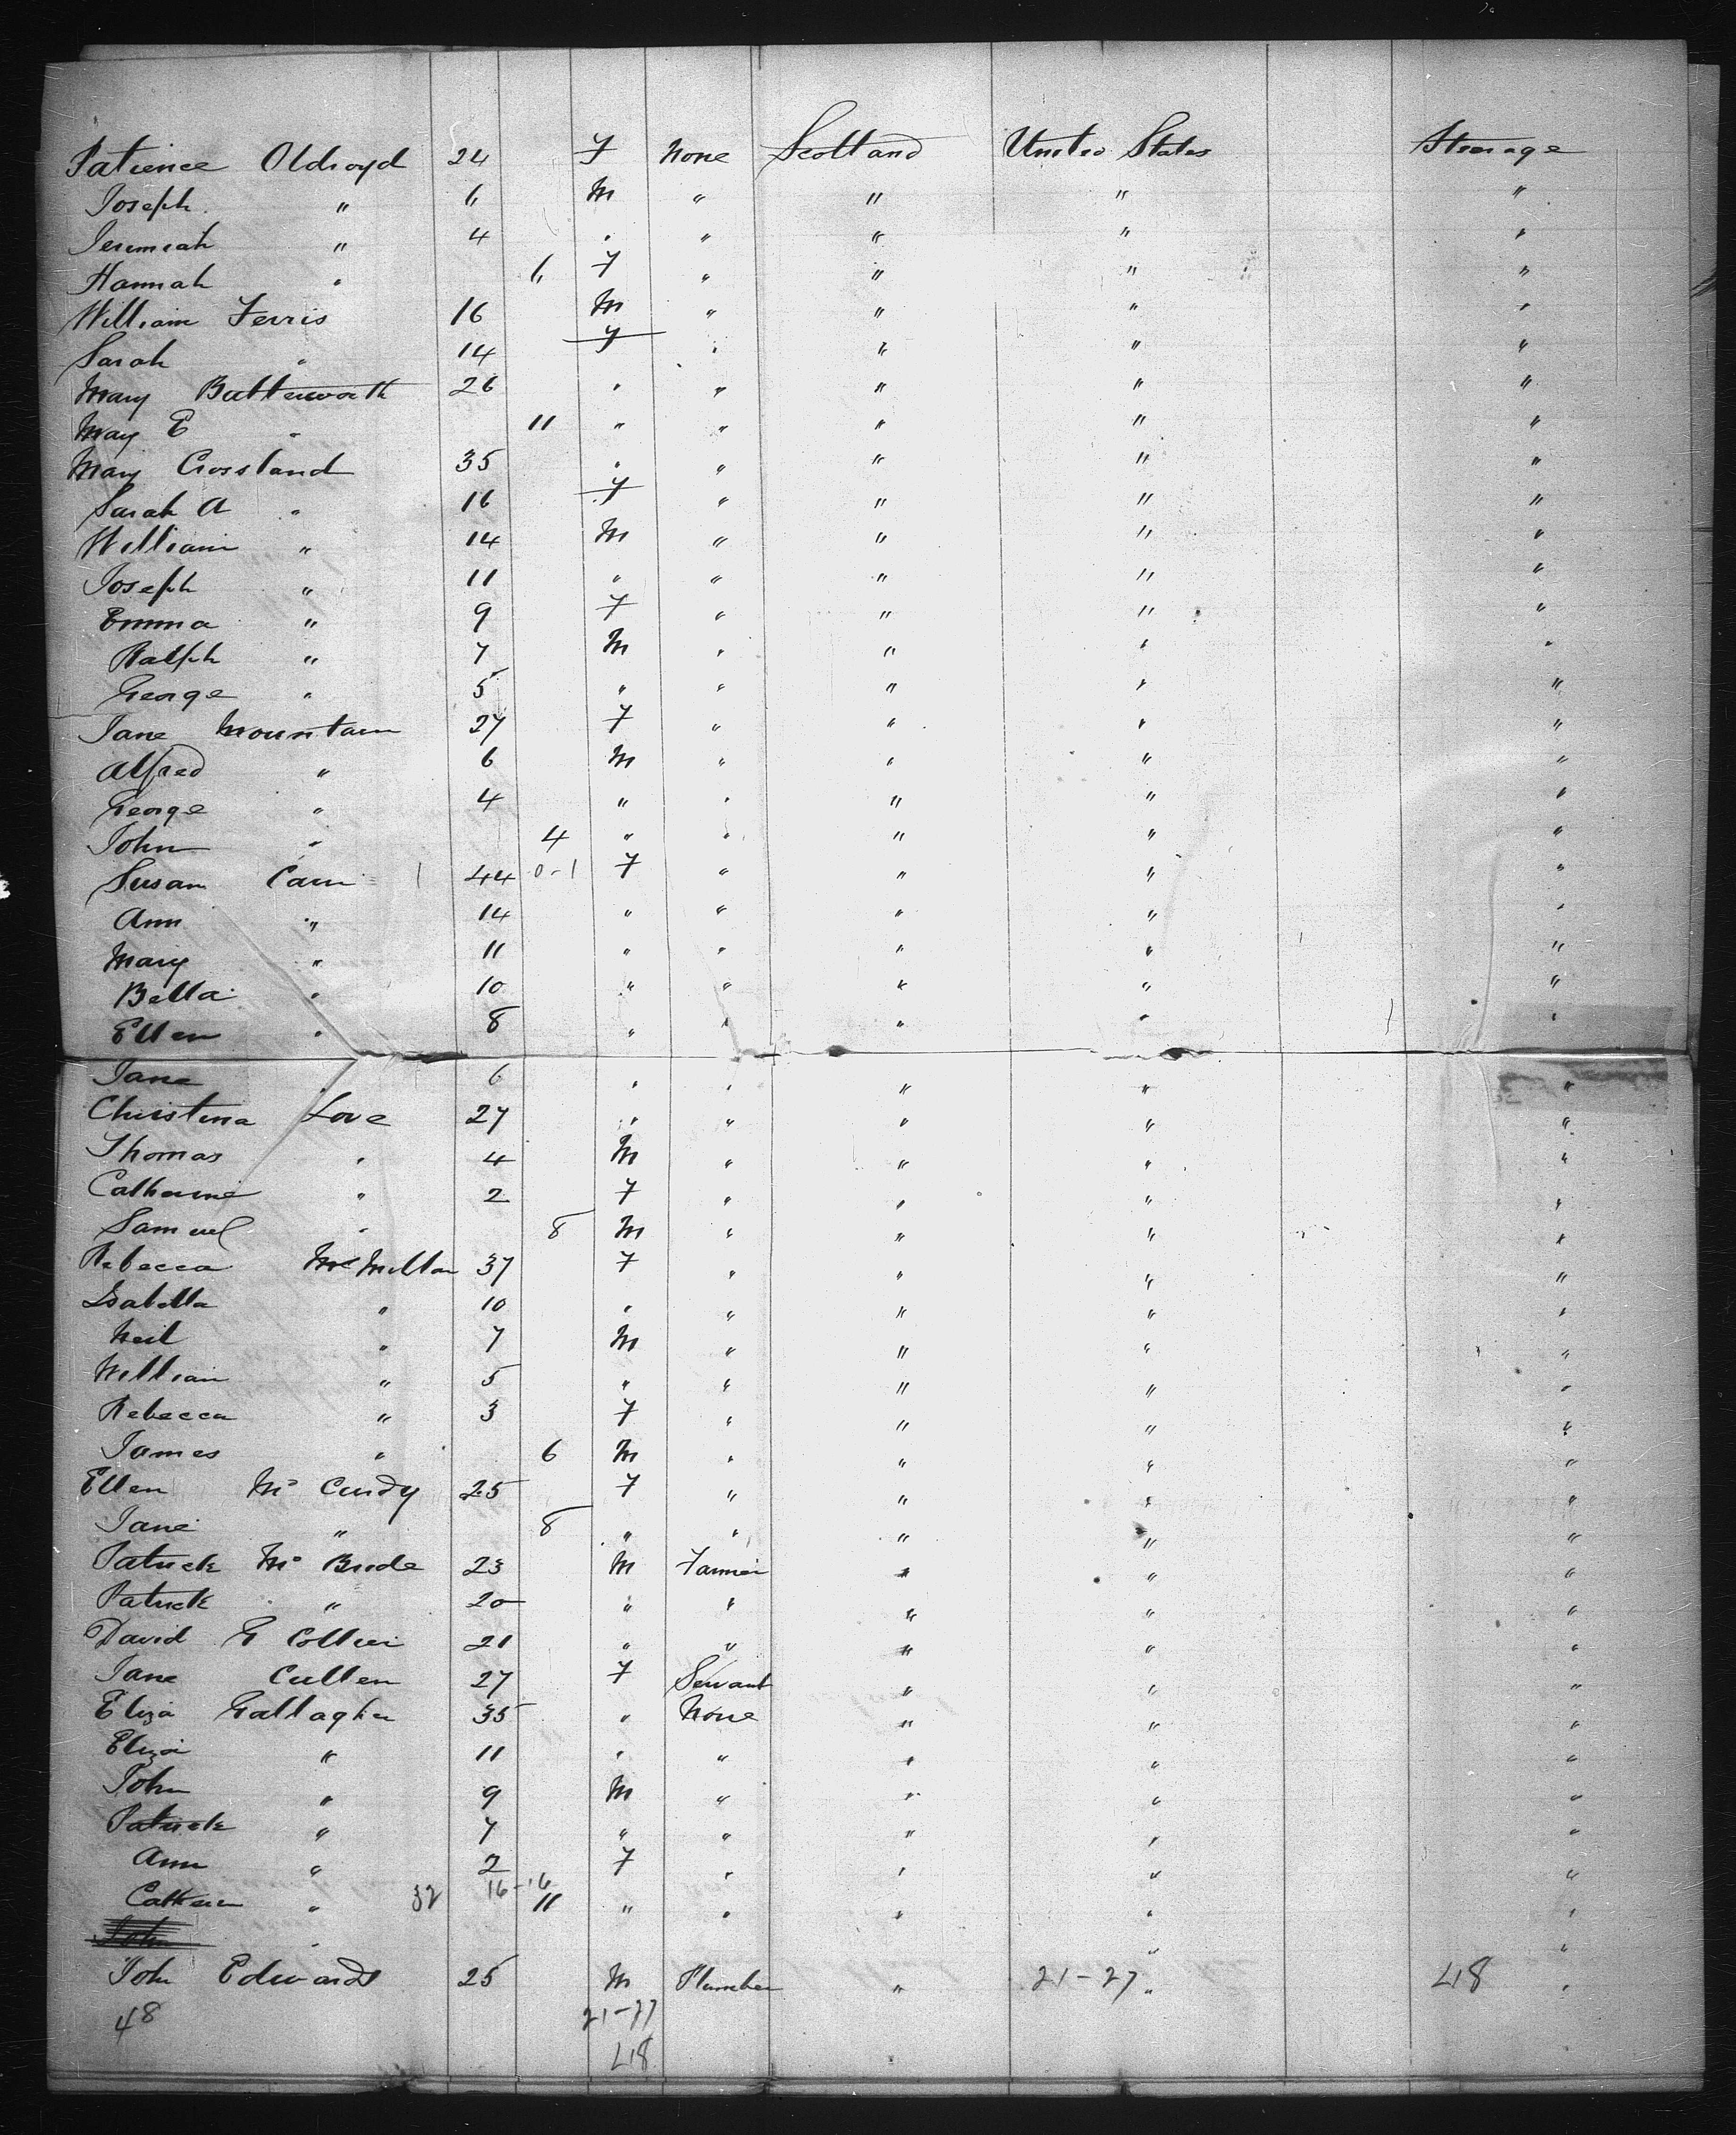 Patience Oldroyd 24 F None Scotland United States Steerage
Joseph " 6 M " " " "
Jeremiah " 4 " " " " "
Hannah " 6 F " " " "
William Ferris 16 M " " " "
Sarah " 14 F " " " "
Mary Butterworth 26 " " " " "
Mary E " 11 " " " " "
Mary Crossland 35 " " " " "
Sarah A " 16 F " " " "
William " 14 M " " " "
Joseph " 11 " " " " "
Emma " 9 F " " " "
Ralph " 7 M " " " "
George " 5 " " " " "
Jane Mountain 27 F " " " "
Alfred " 6 M " " " "
George " 4 " " " " "
John " 4 " " " " "
Susan Cain 1 44 0-1 F " " " "
Ann " 14 " " " " "
Mary " 11 " " " " "
Bella " 10 " " " " "
Ellen " 8 " " " " "
Jane 6 " " " " "
Christina Love 27 " " " " "
Thomas " 4 M " " " "
Catherine " 2 F " " " "
Samuel " 8 M " " " "
Rebecca McMillan 37 F " " " "
Isabella " 10 " " " " "
Neil " 7 M " " " "
William " 5 " " " " "
Rebecca " 3 F " " " "
James " 6 M " " " "
Ellen Mc Curdy 25 F " " " "
Jane " 8 " " " " "
Patrick Mc Bride 23 M Farmer " " "
Patrick " 20 " " " " "
David G Collier 21 " " " " "
Jane Cullen 27 F Servant " " "
Eliza Gallagher 35 " None " " "
Eliza " 11 " " " " "
John " 9 M " " " "
Patrick " 7 " " " " "
Ann " 2 F " " " "
Catherin " 32 16-16 11 " " " " "
John " " "
John Edwards 25 M Plumber " 21-27 " 48 "
48 21-27
48